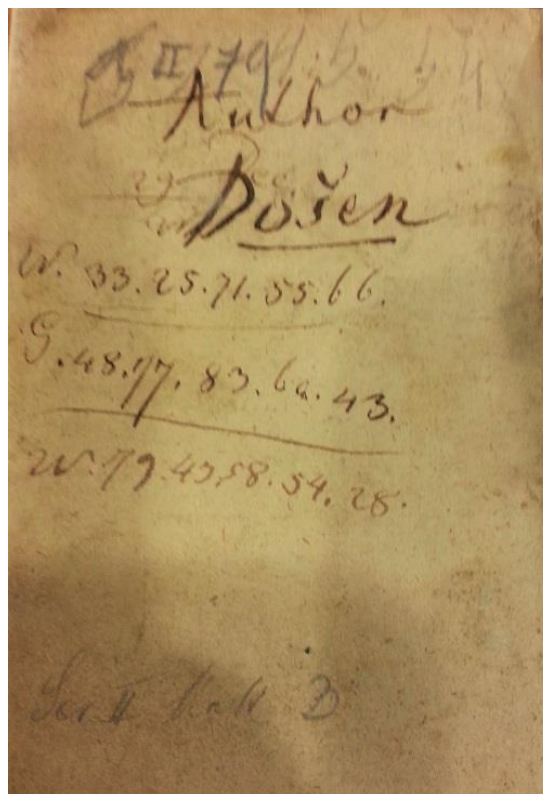 II
Author
Došen
W. 33.25.71.55.66.
G. 48.77.83.60.43.
W. 79.43.58.54.28.
B